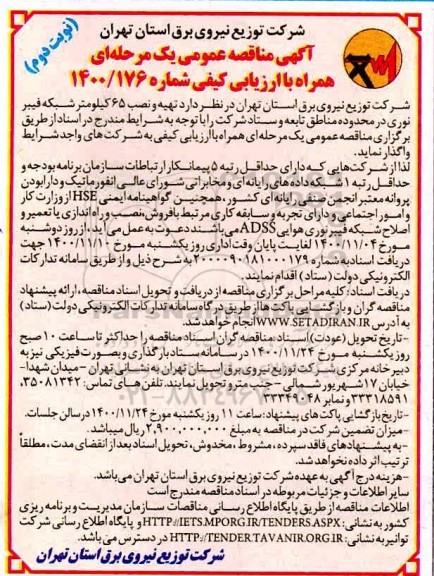 شرکت توزیع نیروی برق استان تهران
(نوبت دوم)
آگهی مناقصه عمومی یک مرحله‌ای
همراه با ارزیابی کیفی شماره ۱۴۰۰/۱۷۶
شرکت توزیع نیروی برق استان تهران در نظر دارد تهیه و نصب ۶۵ کیلومتر شبکه فیبر
نوری در محدوده مناطق تابعه و ستاد شرکت را با توجه به شرایط مندرج در اسناد از طریق
برگزاری مناقصه عمومی یک مرحله ای همراه با ارزیابی کیفی به شرکت های واجد شرایط
واگذار نماید.
لذا از شرکت‌هایی که دارای حداقل رتبه ۵ پیمانکار ارتباطات سازمان برنامه بودجه و
حداقل رتبه ۱ شبکه داده های رایانه ای و مخابراتی شورای عالی انفورماتیک و دارا بودن
پروانه معتبر انجمن صنفی رایانه ای کشور، همچنین گواهینامه ایمنی HSE از وزارت کار
و امور اجتماعی و دارای تجربه و سابقه کاری مرتبط با فروش، نصب و راه اندازی یا تعمیر و
اصلاح شبکه فیبر نوری هوایی ADSS می باشند دعوت به عمل می آید، از روز دوشنبه
مورخ ۱۴۰۰/۱۱/۰۴ لغایت پایان وقت اداری روز یکشنبه مورخ ۱۴۰۰/۱۱/۱۰ جهت
دریافت اسناد به شماره ۲۰۰۰۰۹۰۱۸۱۰۰۰۱۷۹ به شرح ذیل و از طریق سامانه تدارکات
الکترونیکی دولت (ستاد) اقدام نمایند.
دریافت اسناد: کلیه مراحل برگزاری مناقصه از دریافت و تحویل اسناد مناقصه، ارائه پیشنهاد
مناقصه گران و بازگشایی پاکت ها از طریق درگاه سامانه تدارکات الکترونیکی دولت (ستاد)
به آدرس WWW.SETADIRAN.IR انجام خواهد شد.
-تاریخ تحویل (عودت) اسناد: مناقصه گران اسناد مناقصه را حداکثر تا ساعت ۱۰ صبح
روز یکشنبه مورخ ۱۴۰۰/۱۱/۲۴ در سامانه ستاد بارگذاری و بصورت فیزیکی نیز به
دبیرخانه مرکزی شرکت توزیع نیروی برق استان تهران به نشانی تهران - میدان شهدا-
خیابان ۱۷ شهریور شمالی - جنب مترو تحویل نمایند. تلفن های تماس: ۳۵۰۸۱۳۴۲،
۳۳۳۱۸۵۹۱ و نمابر ۳۳۳۴۹۰۴۸
-تاریخ بازگشایی پاکت های پیشنهاد: ساعت ۱۱ روز یکشنبه مورخ ۱۴۰۰/۱۱/۲۴ در سالن جلسات.
-میزان تضمین شرکت در مناقصه به مبلغ ۲,۹۰۰,۰۰۰,۰۰۰ ریال میباشد.
-به پیشنهادهای فاقد سپرده، مشروط، مخدوش، تحویل اسناد بعد از انقضای مدت، مطلقاً
ترتیب اثر داده نخواهد شد.
-هزینه درج آگهی به عهده شرکت توزیع نیروی برق استان تهران می باشد.
سایر اطلاعات و جزئیات مربوطه در اسناد مناقصه مندرج است
اطلاعات مناقصه از طریق پایگاه اطلاع رسانی مناقصات سازمان مدیریت و برنامه ریزی
کشور به نشانی: HTTP://IETS.MPORG.IR/TENDERS.ASPX و پایگاه اطلاع رسانی شرکت
توانیر به نشانی: HTTP://TENDER.TAVANIR.ORG.IR در دسترس می باشد.
شرکت توزیع نیروی برق استان تهران